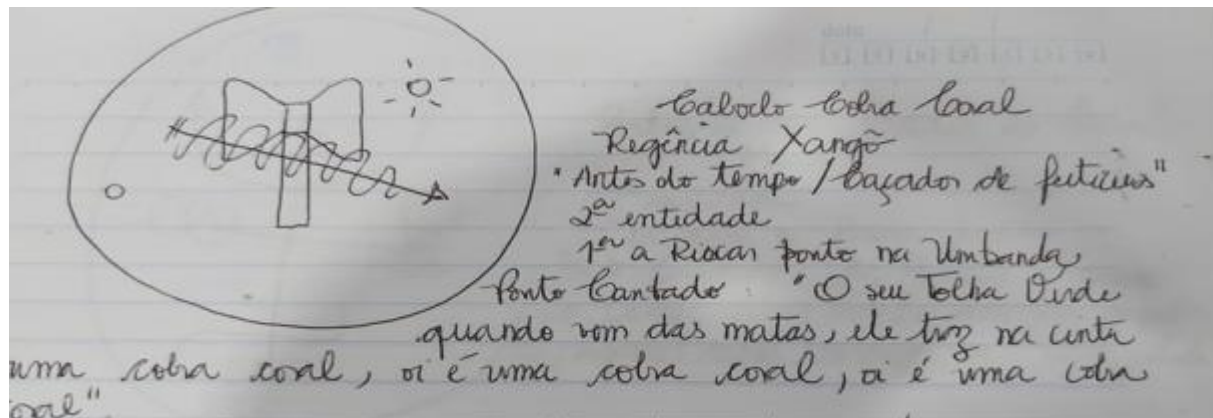 Caboclo Cobra Coral
Regência Xangô
"Antes do tempo / Caçador de feiticeiros"
2ª entidade
1ª a Riscar ponto na Umbanda
Ponto Cantado: "O seu Folha Verde
quando vem das matas, ele traz na cinta
uma cobra coral, oi é uma cobra coral, oi é uma cobra
coral"